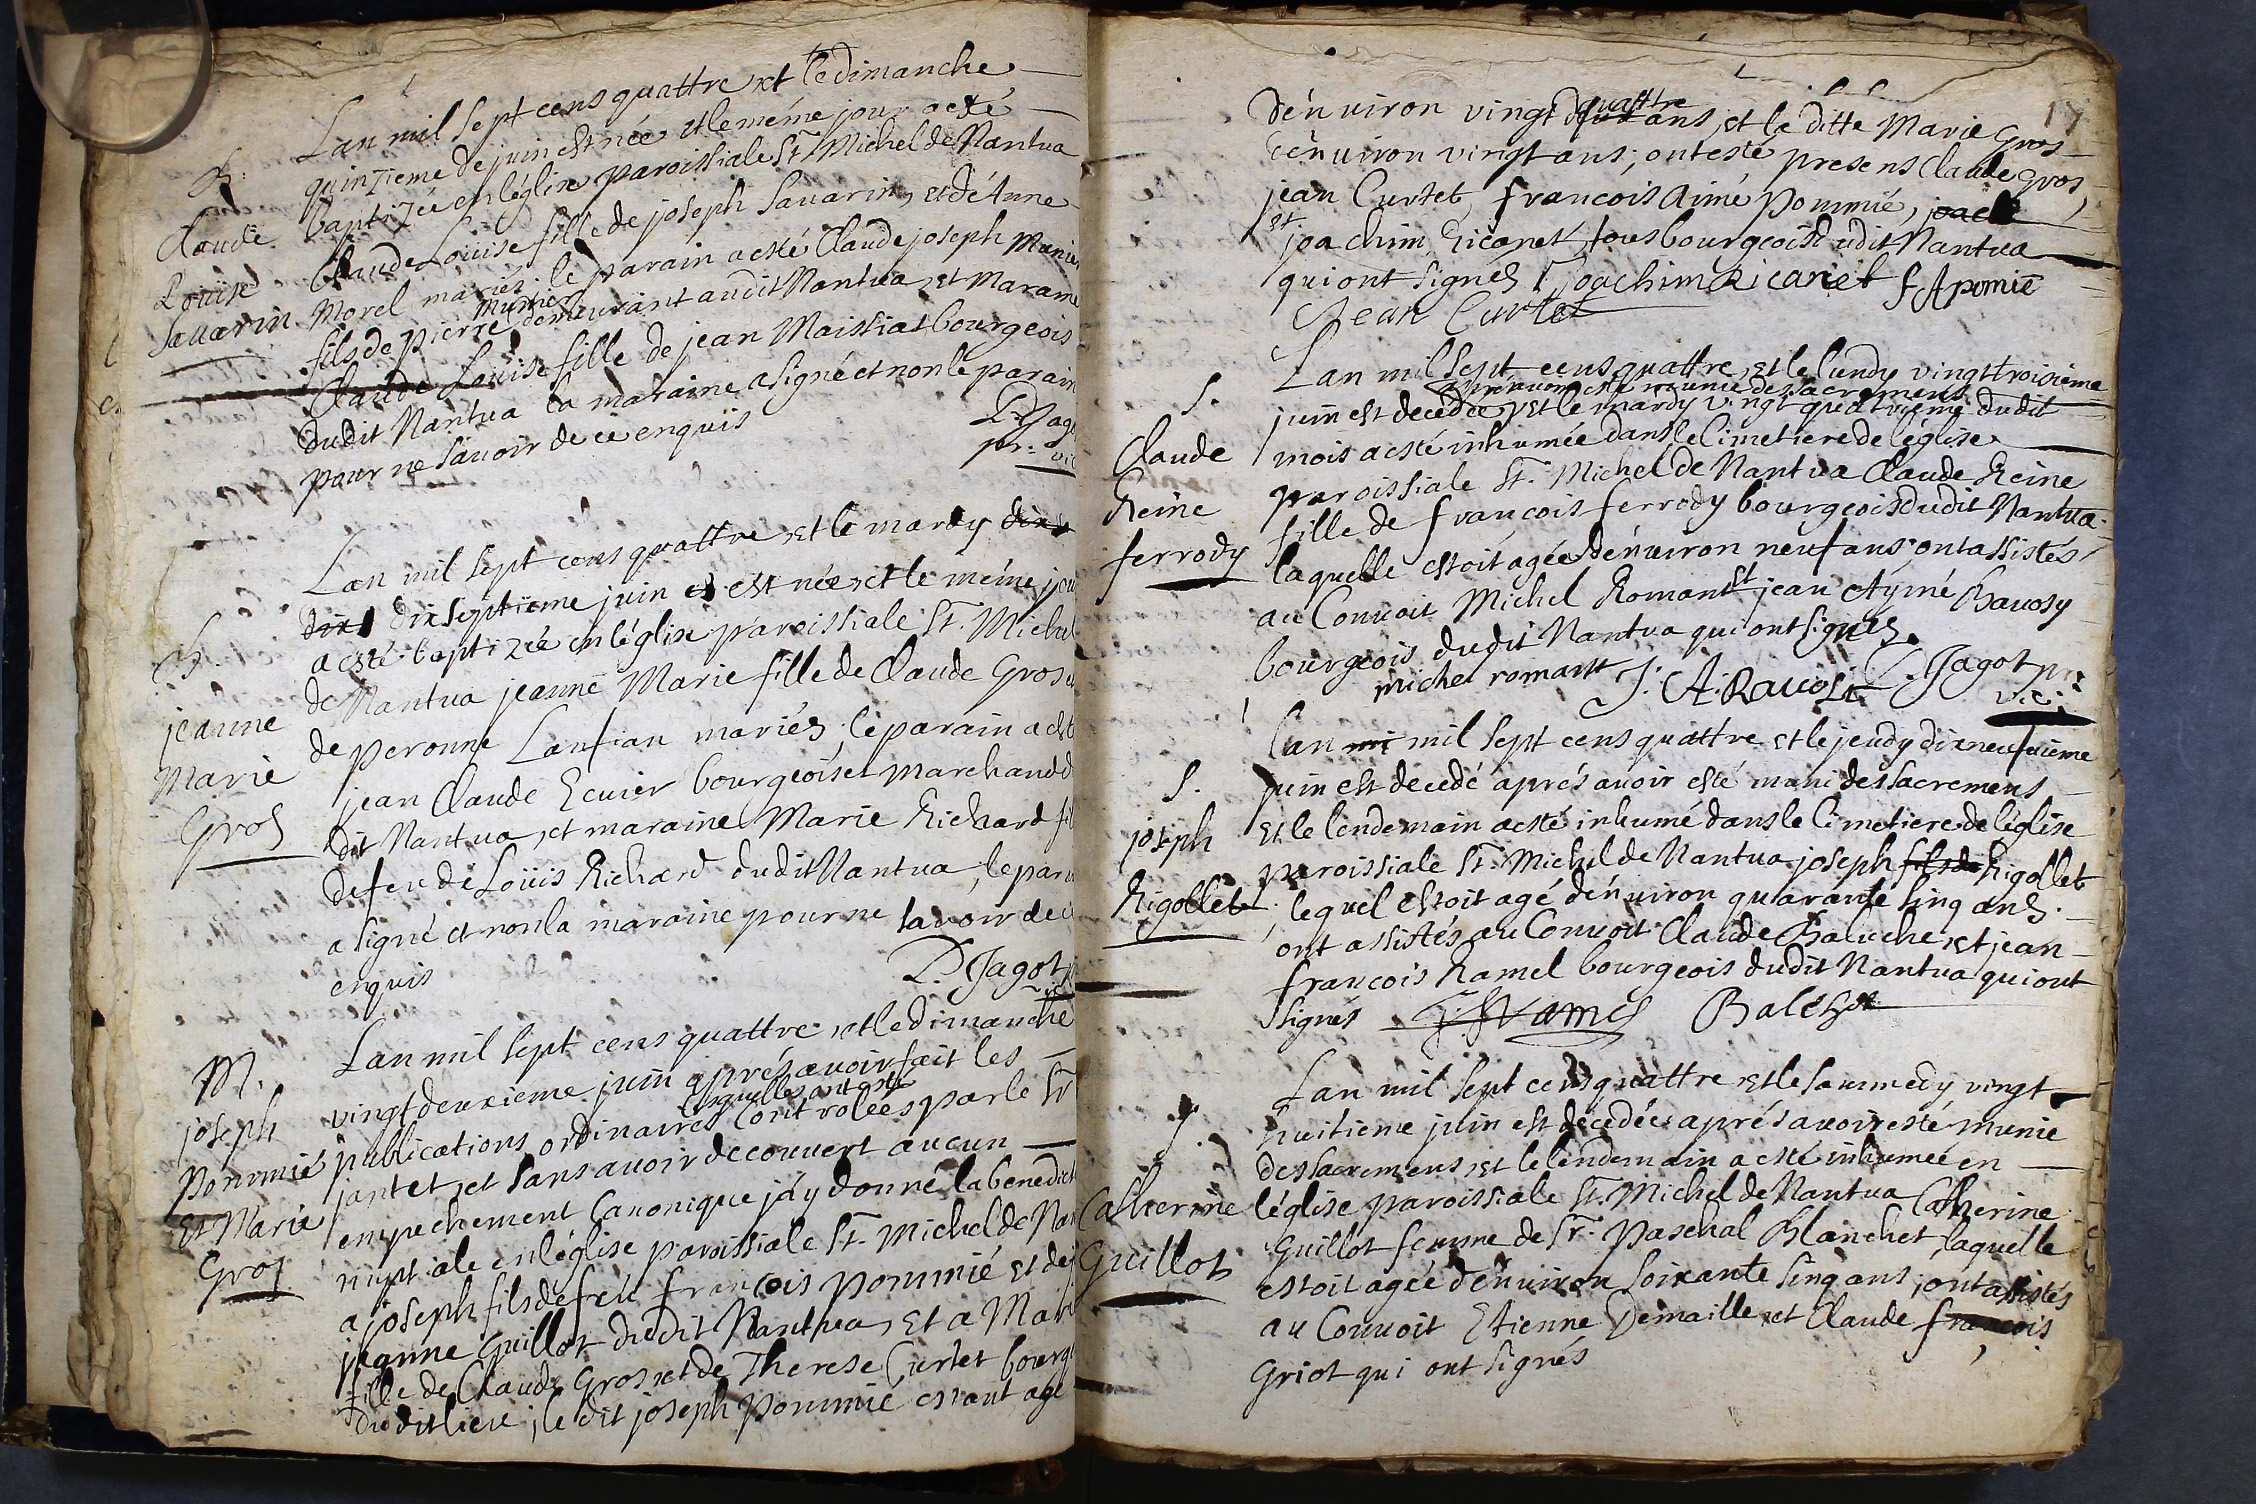 Lan mil sept cens quattre et le dimanche
B. quinzieme de juin est née et le méme jour a esté
baptizée en léglise paroissiale St. Michel de Nantua
Claude Claude Loüise fille de joseph Savarin, et dé Anne
Loüise Morel mariés, le parain a esté Claude joseph Munier
Savarin fils de pierre Munier demeurant audit Nantua, et Maraine
Claude Loüise fille de jean Maissiat bourgeois
dudit Nantua la maraine a signé et non le parain
pour ne sávoir de ce enquis
D. Jagot
pr. vic
Lan mil sept cens quattre, et le mardy
dix septieme juin est née, et le méme jour
B. a esté baptizée en léglise paroissiale St. Michel
de Nantua jeanne Marie fille de Claude Gros et
jeanne de peronne Lanfian mariés, le parain a esté
Marie jean Claude Ecuier bourgeois et marchand
Gros dit Nantua, et maraine Marie Richard fil
de feu dé Loüis Richard dudit Nantua, le parain
a signé et non la maraine pour ne savoir de ce
enquis
D. Jagot
vic
Lan mil sept cens quattre, et le dimanche
M. vingt deuxieme juin aprés avoir fait les
joseph publications ordinaires lesquelles ont esté contrôlées par le Sr
Pommié jantet, et sans avoir decouvert aucun
Et Marie empechement Canonique j'áy donné la benedict
Gros nuptiale en léglise paroissiale St. Michel de Nan
a joseph fils de feü françois pommié et de
jeanne Guillot dudit Nantua, Et a Marie
fille de Claude Gros et de Therese Curtet bourg
dudit lieu; le dit joseph Pommié estant agé
17
dénviron vingt quattre ans, et la ditte Marie Gros
dénviron vingt ans; ont esté presens Claude Gros,
jean Curtet, françois Aimé Pommié,
et joachim Ricanet tous bourgeois dudit Nantua
qui ont signés Joachim Ricanet f A pomié
Jean Curtet
Lan mil sept cens quattre, et le lundy vingt troisieme
S. juin est decedée munie des sacremens, et le mardy vingt quatrieme dudit
Claude mois a esté inhumée dans le Cimetiere de léglise
Reine paroissiale St. Michel de Nantua Claude Reine
ferrody fille de françois ferrody bourgeois dudit Nantua
laquelle estoit agée dénviron neuf ans; ont assistés
au Convoit Michel Romant et jean Aýmé Bavosy
bourgeois dudit Nantua qui ont signés
michel romant J. A. Bavosi D. Jagot pr.
vic.
Lan mil sept cens quattre et le jeudy dixneufvieme
S. juin est decedé aprés avoir esté muni des sacremens
joseph Et le lendemain a esté inhumé dans le Cimetiere de léglise
Rigollet paroissiale St. Michel de Nantua joseph fils de Rigollet
lequel estoit agé dénviron quarante sinq ans.
ont assistés au Convoit Claude Baluche, et jean
françois Ramel bourgeois dudit Nantua qui ont
signés
Lan mil sept cens quattre, et le sammedy vingt
S. huitieme juin est decedée aprés avoir esté munie
des sacremens, et le lendemain a esté inhumée en
Catherine léglise paroissiale St. Michel de Nantua Catherine
Guillot Guillot femme de Sr. Paschal Blanchet, laquelle
estoit agée dénviron soixante sinq ans; ont assistés
au Convoit Etienne Demaille, et Claude françois
Griot qui ont signés